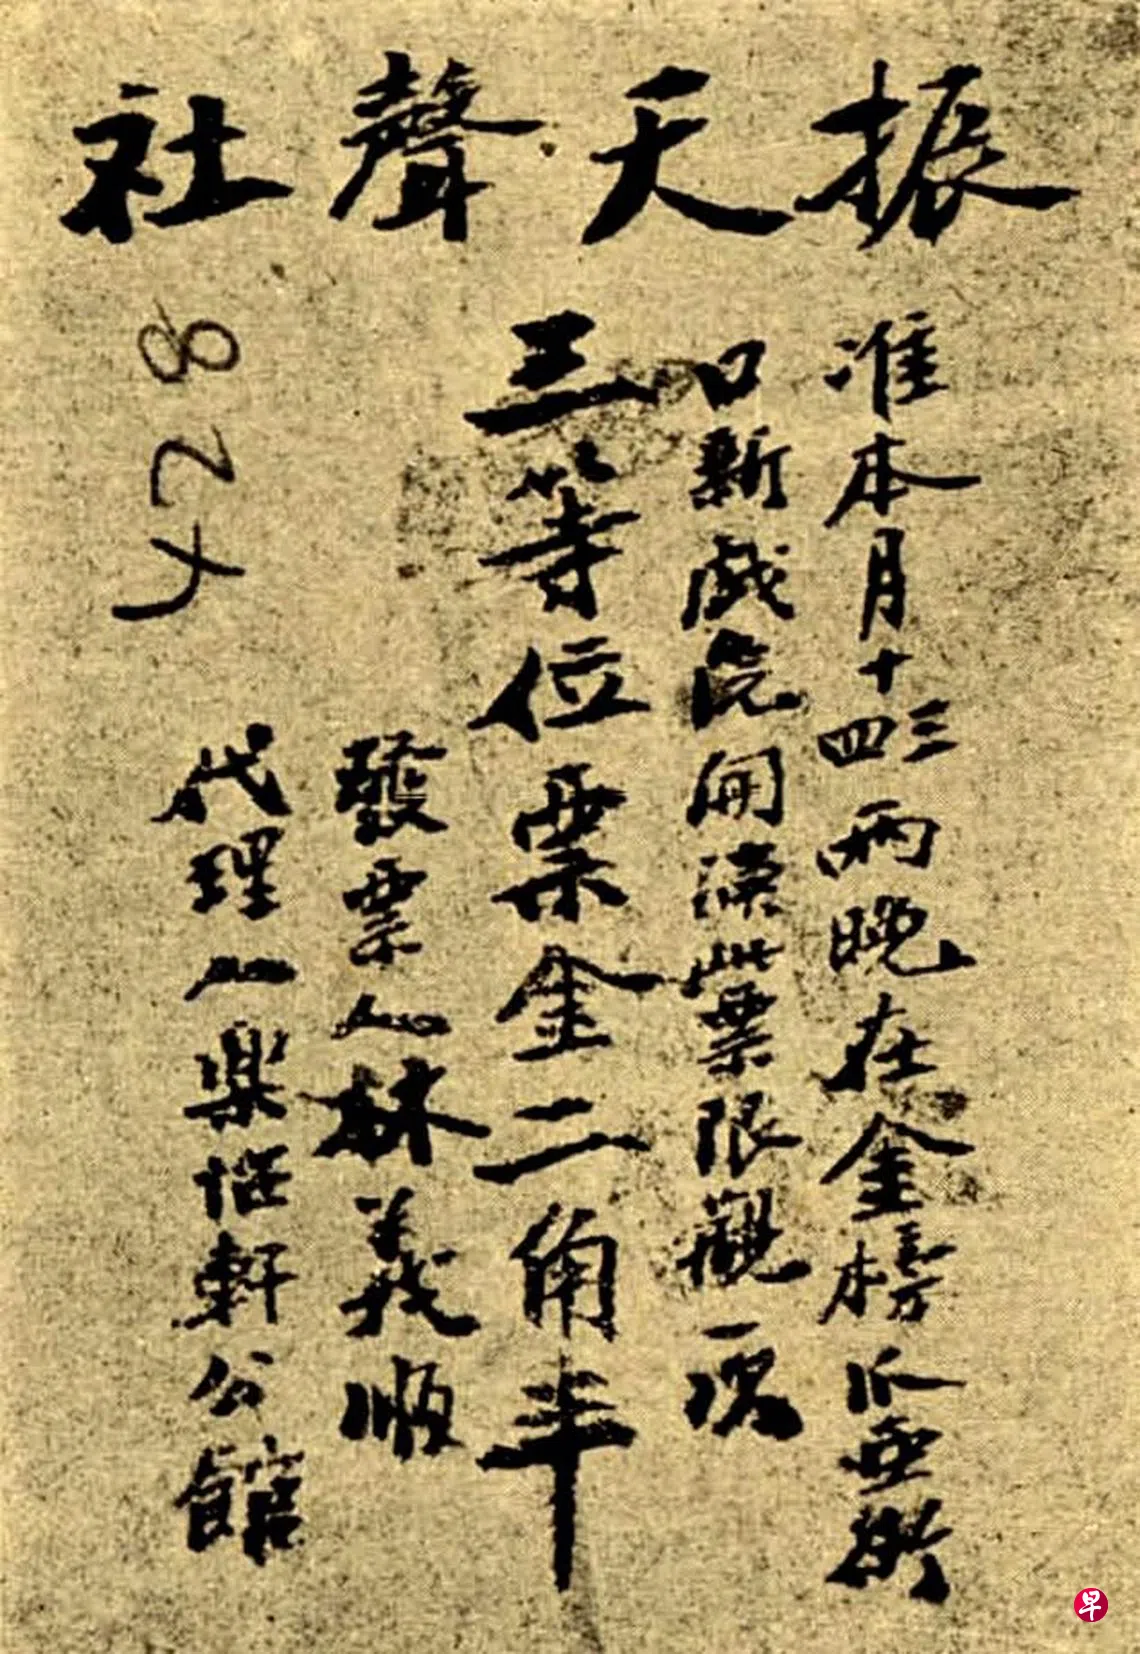 振天聲社
准本月十三四兩晚在金榜爪亞街
口新戲院開演此票限觀一次
三等位票金二角半
發票人林義順
代理人樂恆軒公館
82
早